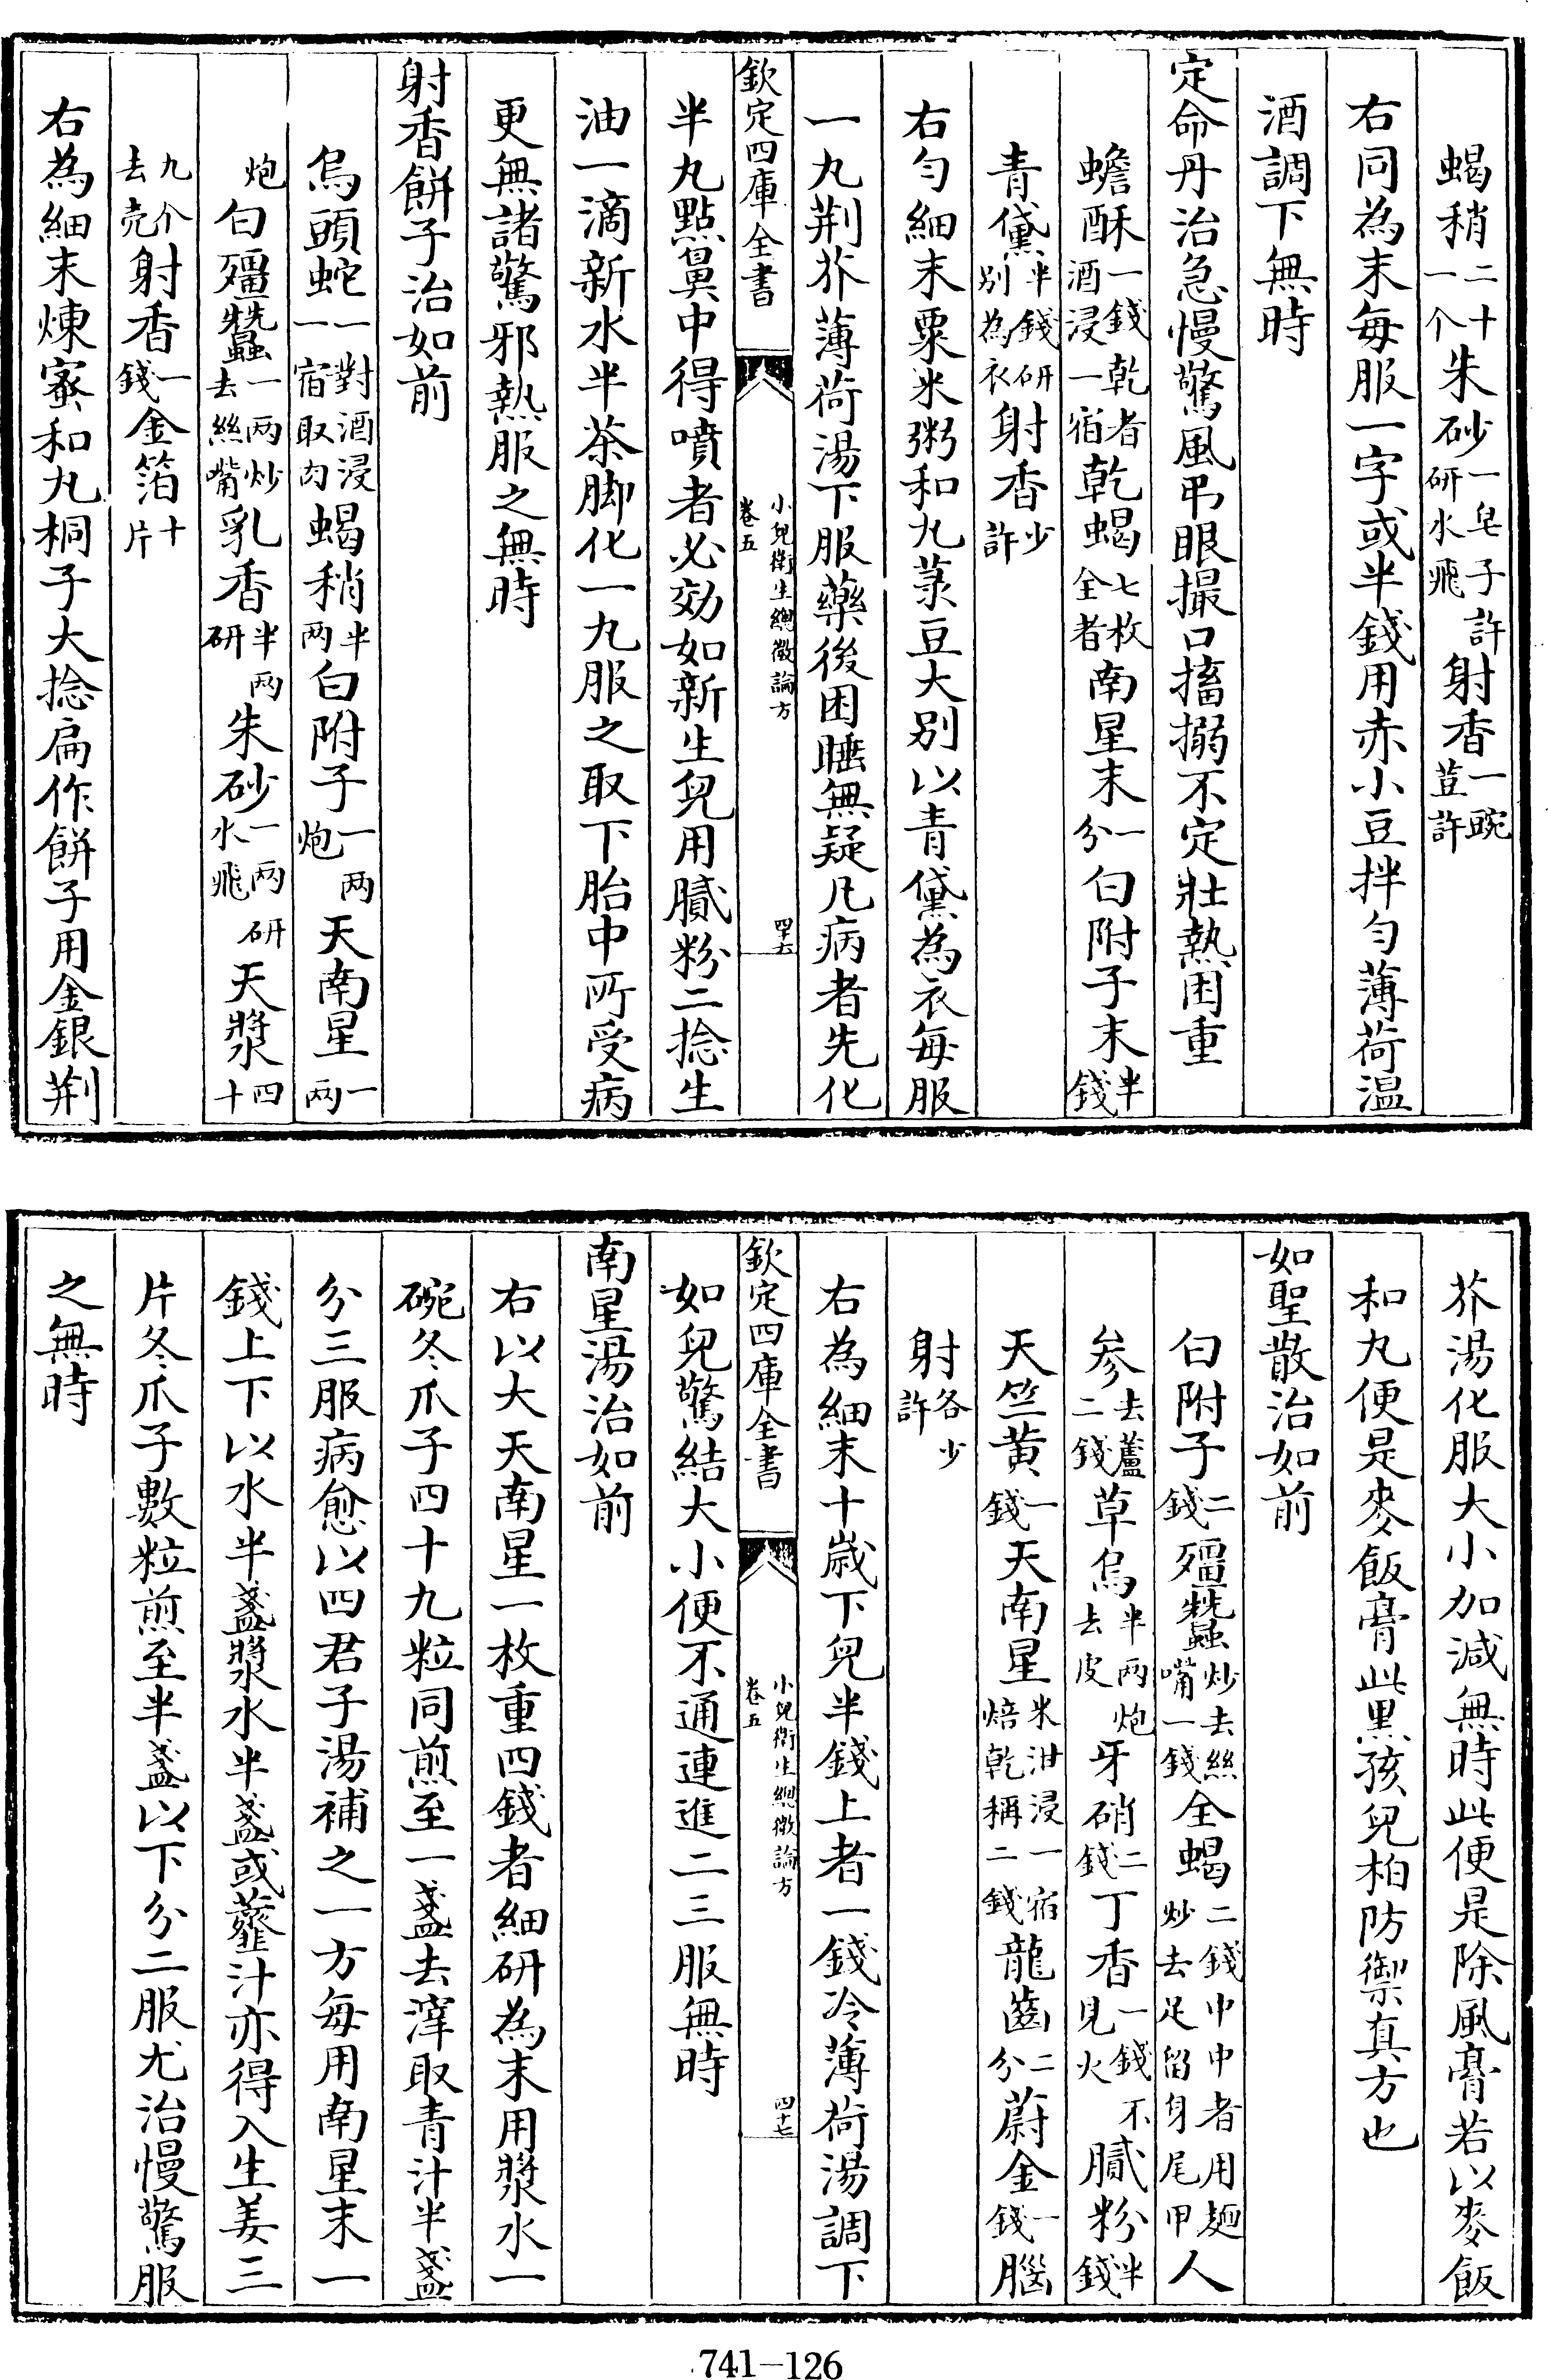 蝎稍二十一个朱砂一皂子許研水飛射香一豌荳許
右同為末每服一字或半錢用赤小豆拌勻薄荷温
酒調下無時
定命丹治急慢驚風弔眼撮口搐搦不定壯熱困重
蟾酥一錢乾者酒浸一宿乾蝎七枚全者南星末一分白附子末半錢
青黛半錢研别為衣射香少許
右勻細末粟米粥和丸菉豆大别以青黛為衣每服
一丸荆芥薄荷湯下服藥後困睡無疑凡病者先化
欽定四庫全書 小兒衛生總微論方 卷五 四十六
半丸點鼻中得噴者必効如新生兒用膩粉二捻生
油一滴新水半茶脚化一丸服之取下胎中所受病
更無諸驚邪熱服之無時
射香餅子治如前
烏頭蛇一對酒浸一宿取肉蝎稍半两白附子一两炮天南星一两
炮白殭蠶一两炒去絲嘴乳香半两研朱砂一两研水飛天漿四十
九介去壳射香一錢金箔十片
右為細末煉蜜和丸桐子大捻扁作餅子用金銀荆
芥湯化服大小加減無時此便是除風膏若以麥飯
和丸便是麥飯膏此黒孩兒柏防禦真方也
如聖散治如前
白附子二錢殭蠶炒去絲嘴一錢全蝎二錢中中者用麺炒去足留身尾甲人
参去蘆二錢草烏半两炮去皮牙硝二錢丁香一錢不見火膩粉半錢
天竺黄一錢天南星米泔浸一宿焙乾稱二錢龍齒二分蔚金一錢腦
射各少許
右為細末十歲下兒半錢上者一錢冷薄荷湯調下
欽定四庫全書 小兒衛生總微論方 卷五 四十七
如兒驚結大小便不通連進二三服無時
南星湯治如前
右以大天南星一枚重四錢者細研為末用漿水一
碗冬爪子四十九粒同煎至一盞去滓取青汁半盞
分三服病愈以四君子湯補之一方每用南星末一
錢上下以水半盞漿水半盞或虀汁亦得入生姜三
片冬爪子數粒煎至半盞以下分二服尤治慢驚服
之無時
741—126